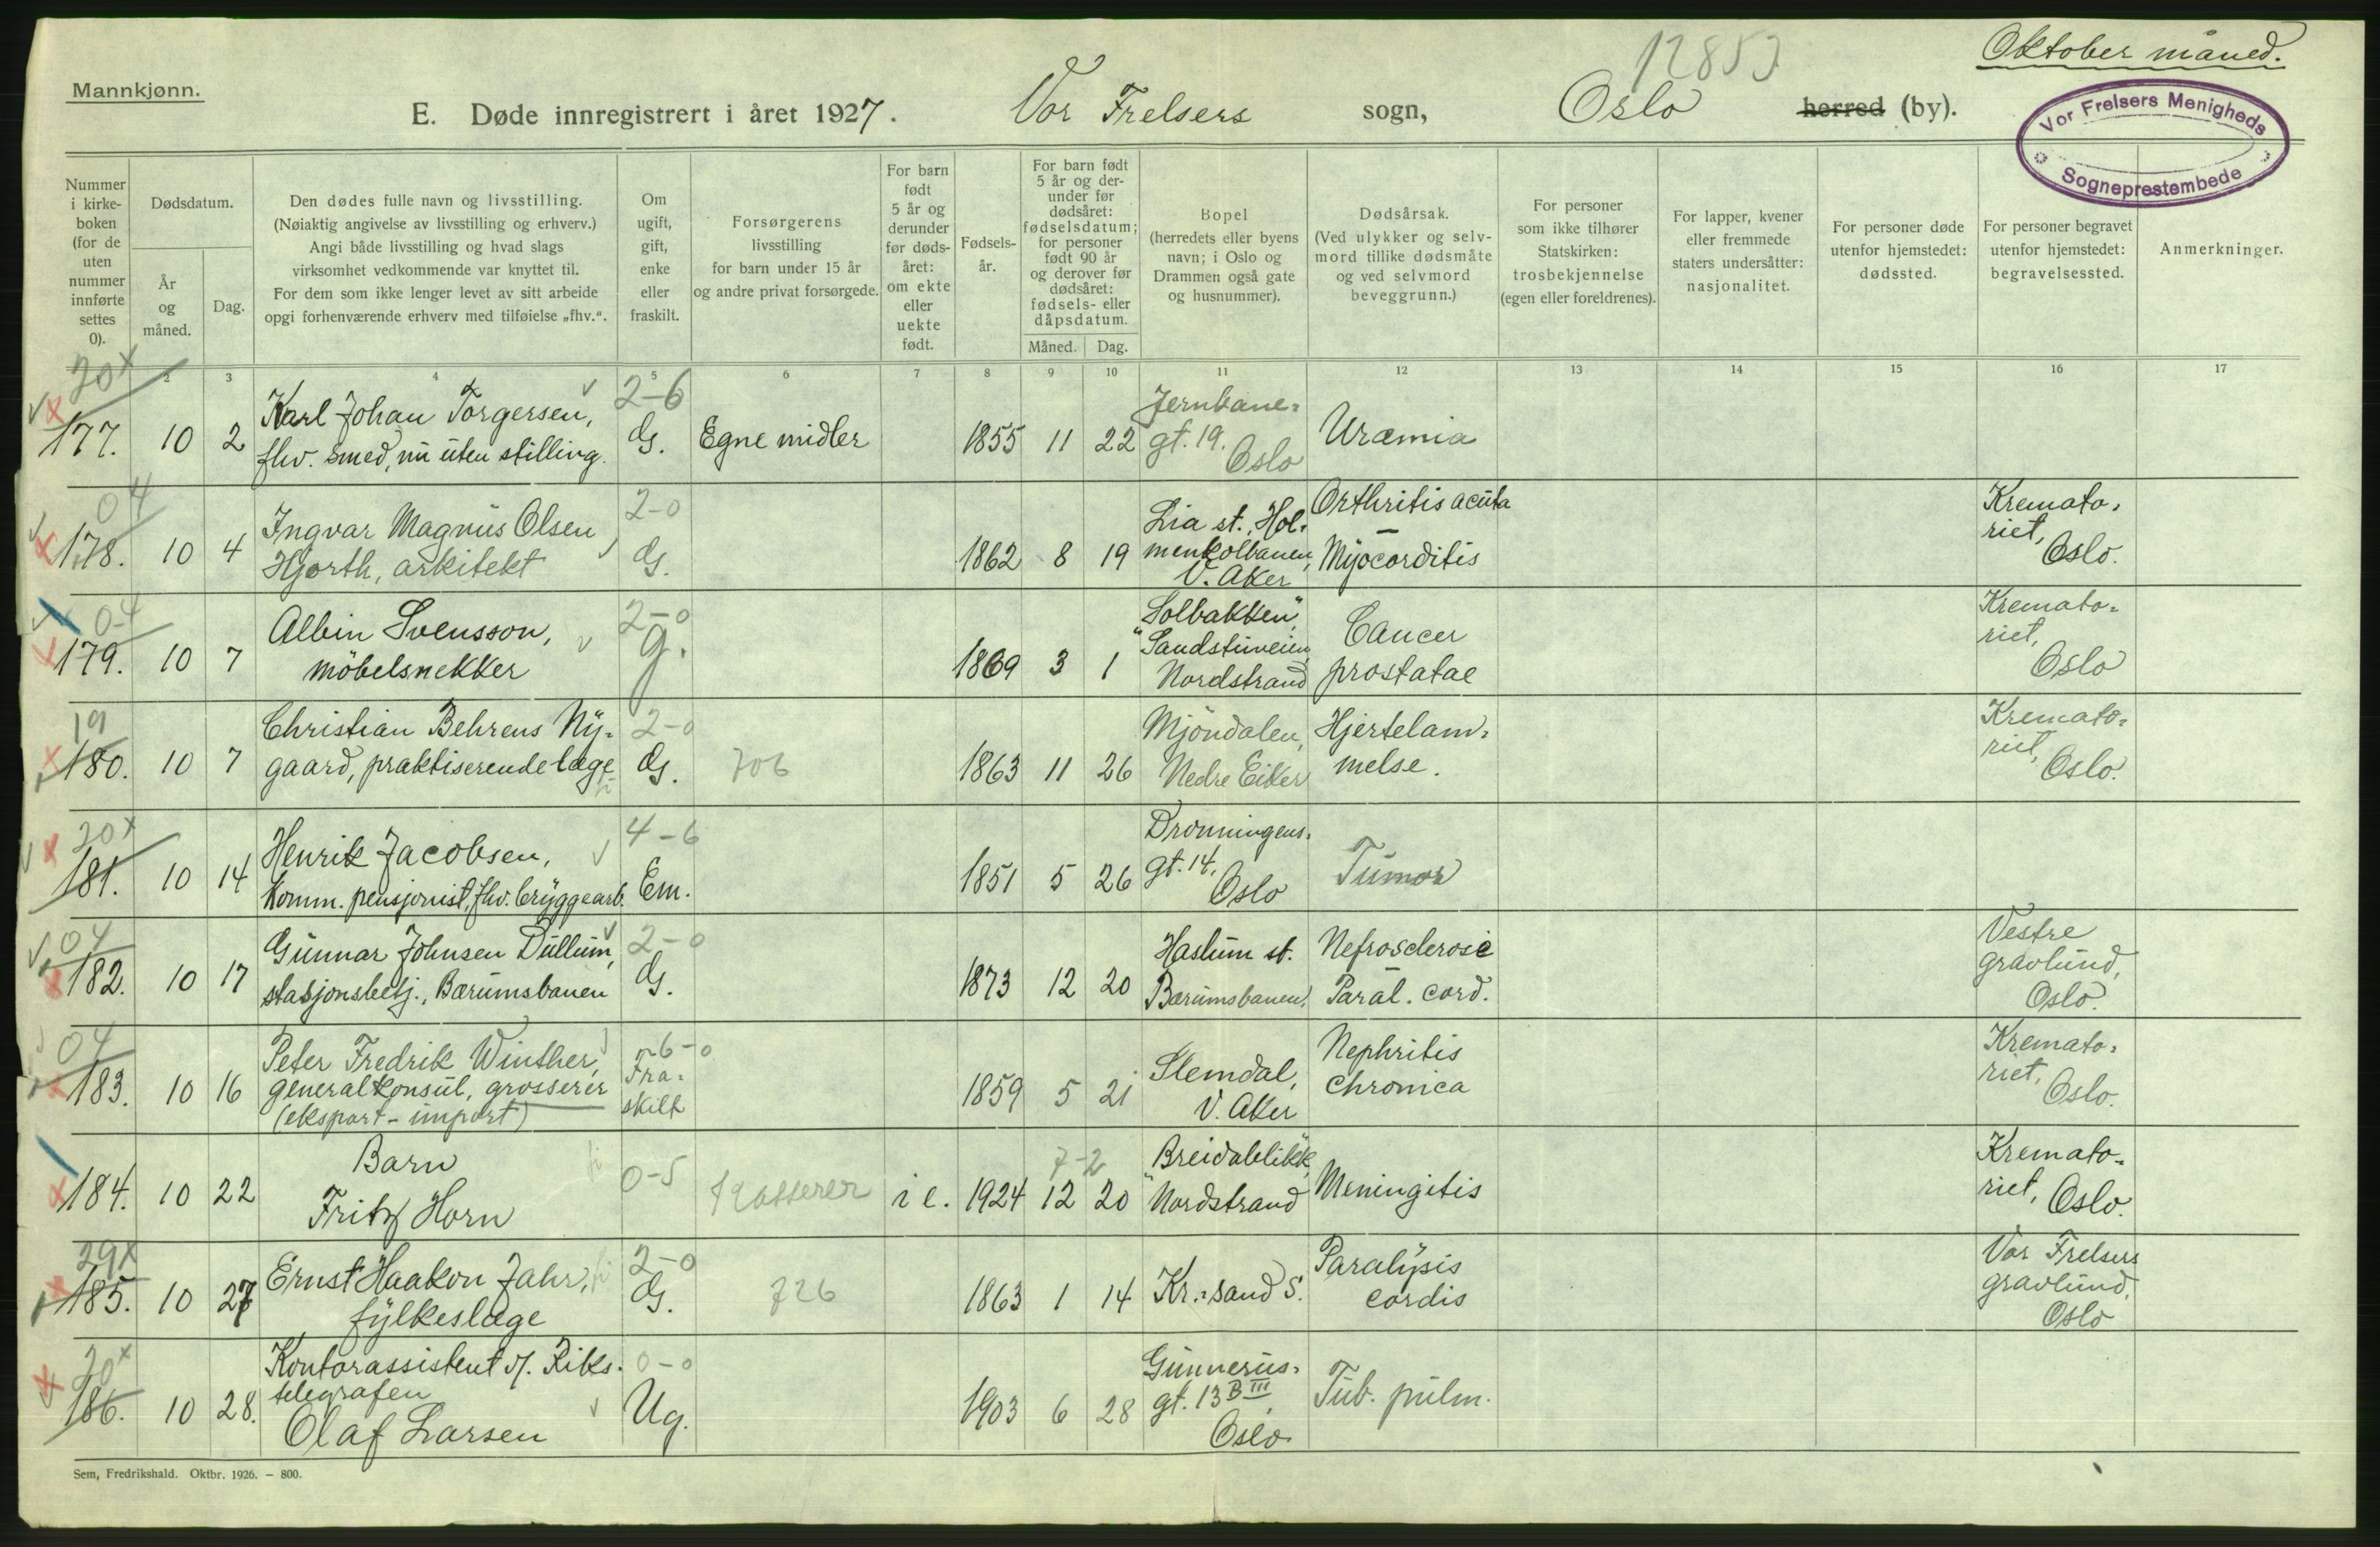 12853
Oktober måned.
Mannkjønn.
E. Døde innregistrert i året 1927. Vor Frelsers sogn, Oslo herred (by).
Vor Frelsers Menigheds
Sogneprestembede
Nummer i kirke- boken (for de uten nummer innførte settes 0).
Dødsdatum.
År og måned.
Dag.
Den dødes fulle navn og livsstilling.
(Nøiaktig angivelse av livsstilling og erhverv.)
Angi både livsstilling og hvad slags
virksomhet vedkommende var knyttet til.
For dem som ikke lenger levet av sitt arbeide
opgi forhenværende erhverv med tilføielse „fhv.“.
Om ugift, gift, enke eller fraskilt.
Forsørgerens
livsstilling
for barn under 15 år
og andre privat forsørgede.
For barn født 5 år og derunder før døds- året: om ekte eller uekte født.
Fødsels- år.
For barn født 5 år og der- under før dødsåret: fødselsdatum; for personer født 90 år og derover før dødsåret: fødsels- eller dåpsdatum.
Måned. Dag.
Bopel
(herredets eller byens
navn; i Oslo og
Drammen også gate
og husnummer).
Dødsårsak.
(Ved ulykker og selv-
mord tillike dødsmåte
og ved selvmord
beveggrunn.)
For personer
som ikke tilhører
Statskirken:
trosbekjennelse
(egen eller foreldrenes).
For lapper, kvener
eller fremmede
staters undersåtter:
nasjonalitet.
For personer døde
utenfor hjemstedet:
dødssted.
For personer begravet
utenfor hjemstedet:
begravelsessted.
Anmerkninger.
2 3 4 5 6 7 8 9 10 11 12 13 14 15 16 17
20x
177. 10 2 Karl Johan Torgersen,
fhv. smed, nu uten stilling.
2-6
G. Egne midler 1855 11 22 Jernbane-
gt. 19.
Oslo
Uræmia
04
178. 10 4 Ingvar Magnus Olsen
Hjorth, arkitekt
2-0
G. 1862 8 19 Lia st., Hol-
menkolbanen,
V. Aker
Orthritis acuta
–
Myocorditis
Kremato-
riet,
Oslo.
04
179. 10 7 Albin Svensson,
möbelsnekker
2-0
g. 1869 3 1 "Solbakken",
Sandstuveien,
Nordstrand
Cancer
prostatae
Kremato-
riet,
Oslo
19
180. 10 7 Christian Behrens Ny-
gaard, praktiserende læge
2-0
G. 706 1863 11 26 Mjöndalen,
Nedre Eiker
Hjertelam-
melse.
Kremato-
riet,
Oslo.
20x
181. 10 14 Henrik Jacobsen,
Komm. pensjonist, fhv. bryggearb.
4-6
Em. 1851 5 26 Dronningens-
gt. 14,
Oslo
Tumor
04
182. 10 17 Gunnar Johnsen Dullum,
stasjonsbetj., Bærumsbanen
2-0
G. 1873 12 20 Haslum st.
Bærumsbanen.
Nefrosclerose
Paral. cord.
Vestre
gravlund,
Oslo.
04
183. 10 16 Peter Fredrik Winther,
generalkonsul, grosserer
(eksport - import)
6-0
Fra-
skilt
1859 5 21 Slemdal,
V. Aker
Nephritis
chronica
Kremato-
riet,
Oslo.
184. 10 22 Barn
Fritz Horn
0-5
i e. 1924 12 20
7-2
"Breidablikk",
Nordstrand
Meningitis
Kremato-
riet, Oslo.
29x
185. 10 27 Ernst Haakon Jahr,
fylkeslæge
2-0
G. 726 1863 1 14 Kr.-sand S.
Paralysis
cordis
Vor Frelsers
gravlund,
Oslo
20x
186. 10 28. Kontorassistent v/. Riks-
telegrafen
Olaf Larsen
0-0
Ug. 1903 6 28 Gunnerus-
gt. 13 B III,
Oslo.
Tub. pulm.
Sem, Fredrikshald. Oktbr. 1926. – 800.